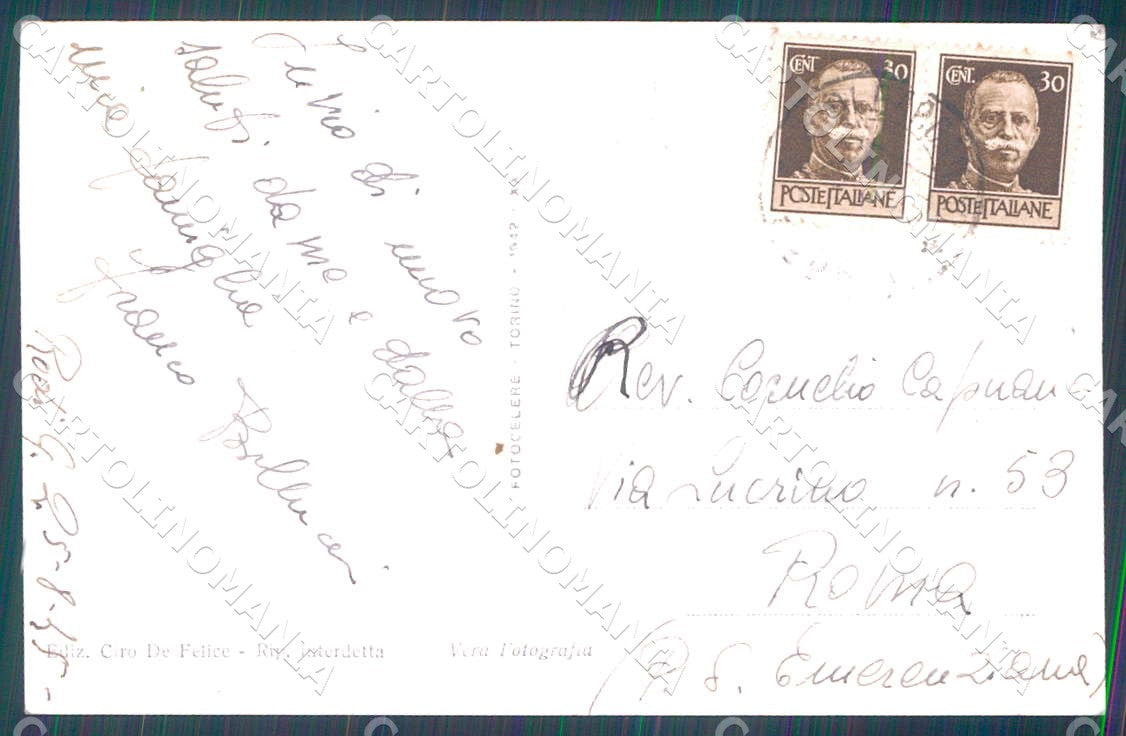 Invio di nuovo
saluti da me e dalla
mia famiglia
Franco
25-8-
Ediz. Ciro De Felice - Rip. Interdetta
Vera Fotografia
FOTOCELERE - TORINO - 1942 -
CENT 30
POSTE ITALIANE
CENT. 30
POSTE ITALIANE
Rev. Cornelio Capuani
Via Lucrino n. 53
Roma
(P. S. Emerenziana)
CARTOLINOMANIA